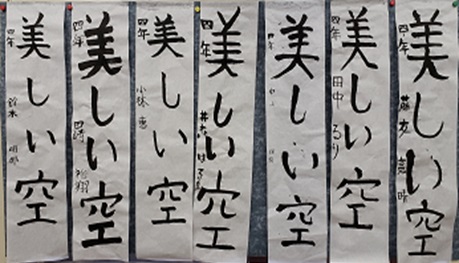 美しい空
四年
藤友
美しい空
四年
田中 るり
美しい空
美しい空
四年
はるな
美しい空
四年
小林 恵
美しい空
四年
美しい空
四年
鈴木